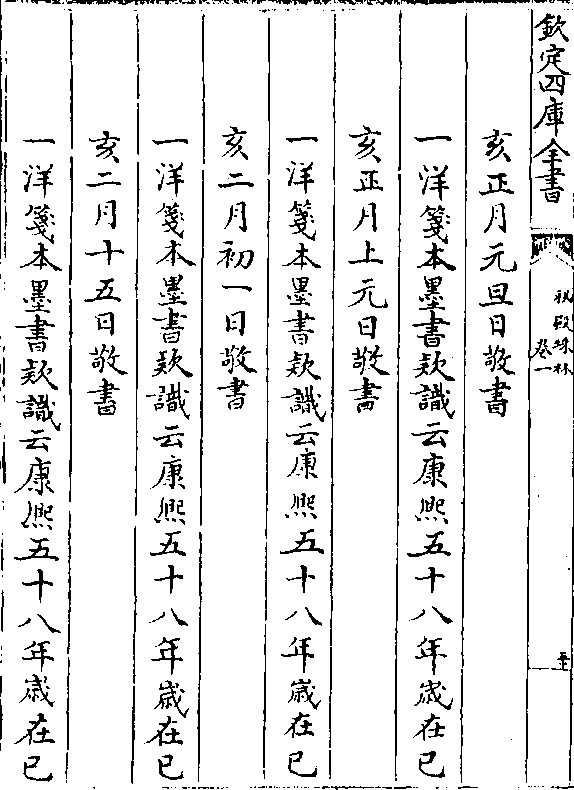 欽定四庫全書
祕殿珠林
卷一
亥正月元旦日敬書
一洋箋本墨書款識云康熙五十八年歲在己
亥正月上元日敬書
一洋箋本墨書款識云康熙五十八年歲在己
亥二月初一日敬書
一洋箋本墨書款識云康熙五十八年歲在己
亥二月十五日敬書
一洋箋本墨書款識云康熙五十八年歲在己